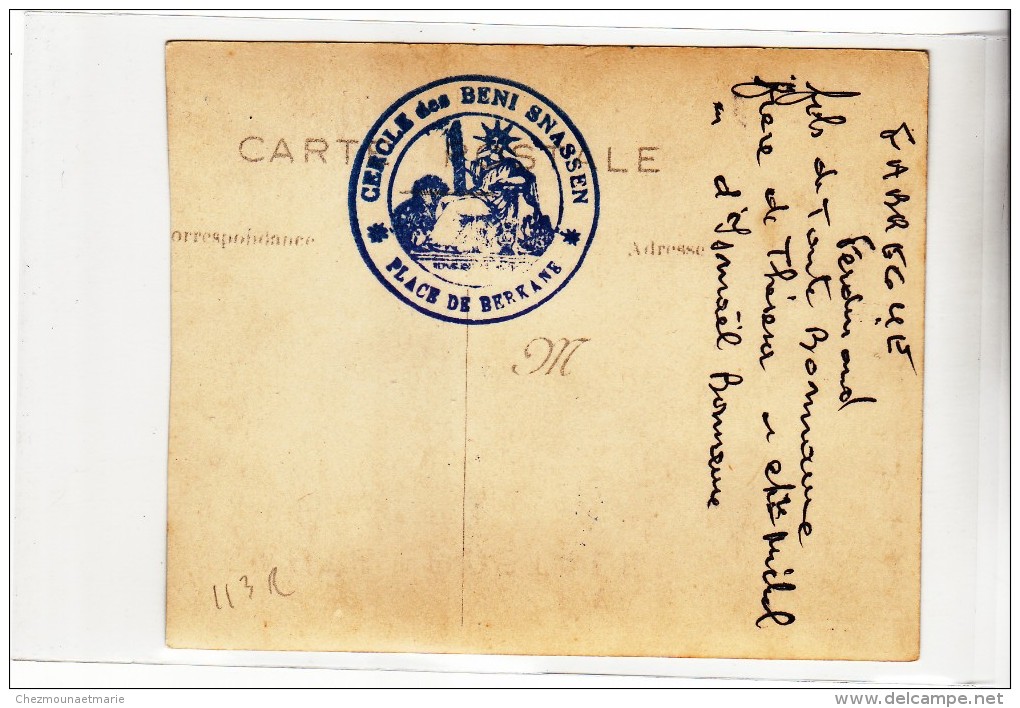 CARTE POSTALE
Correspondance
Adresse
M
CERCLE des BENI SNASSEN
PLACE DE BERKANE
FABREGUE
Ferdinand
fils de Tante Bonnaure
frère de Thérèse et Michel
d'Ismaël Bonnaure
113 R
Chezmounaetmarie
www.delcampe.net